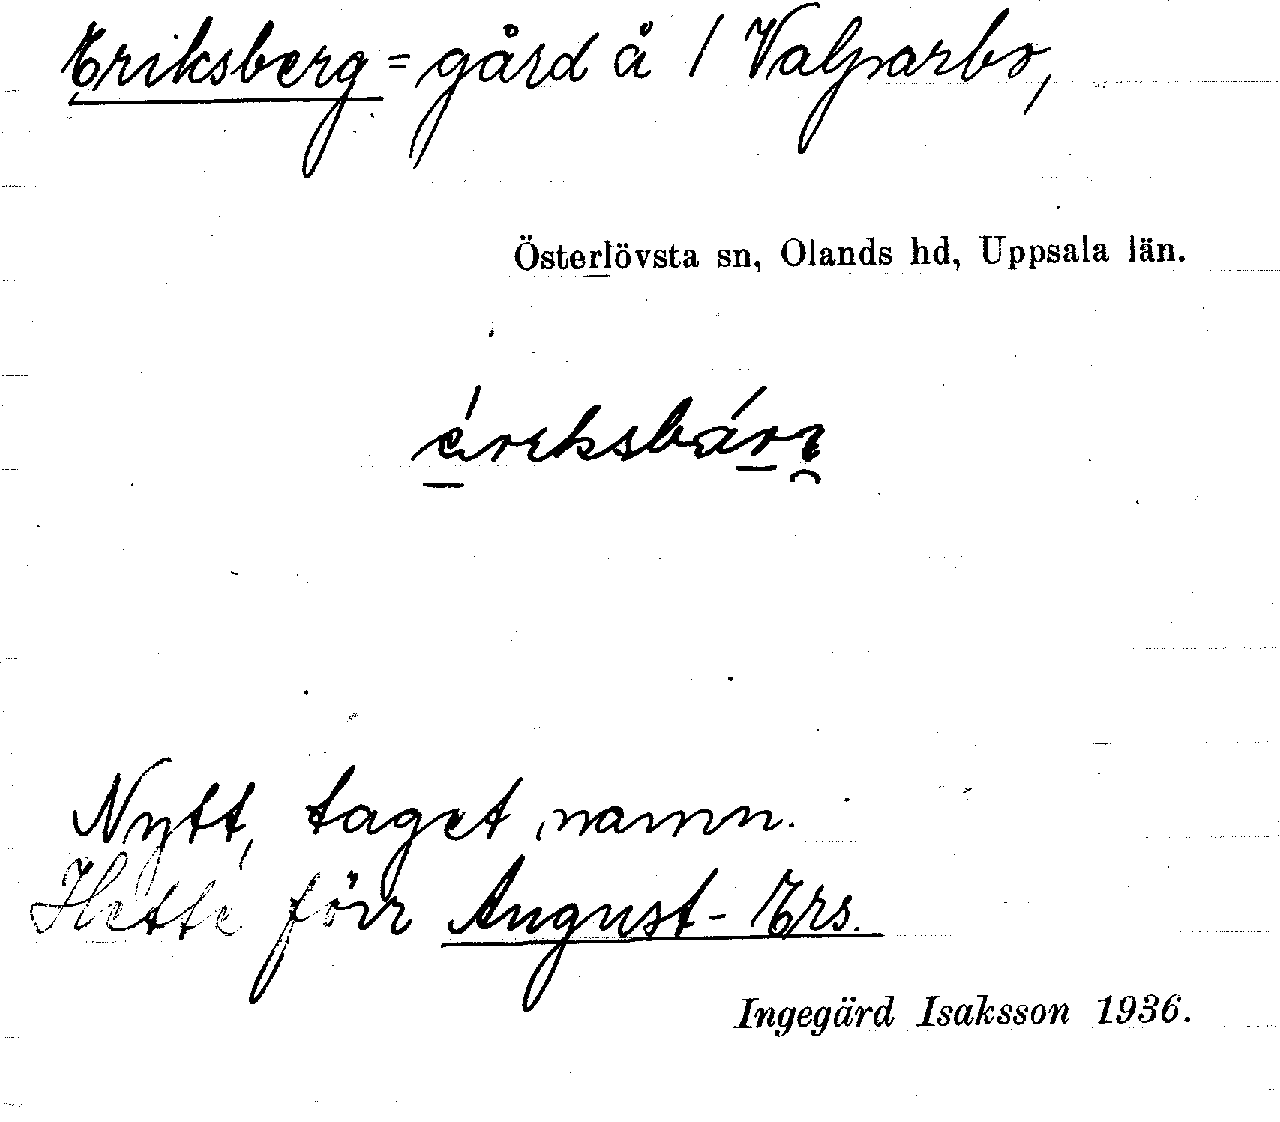 Eriksberg = gård å 1 Valparbo,
Österlövsta sn, Olands hd, Uppsala län.
Nytt, taget namn.
Hette förr August-Ers.
Ingegärd Isaksson 1936.